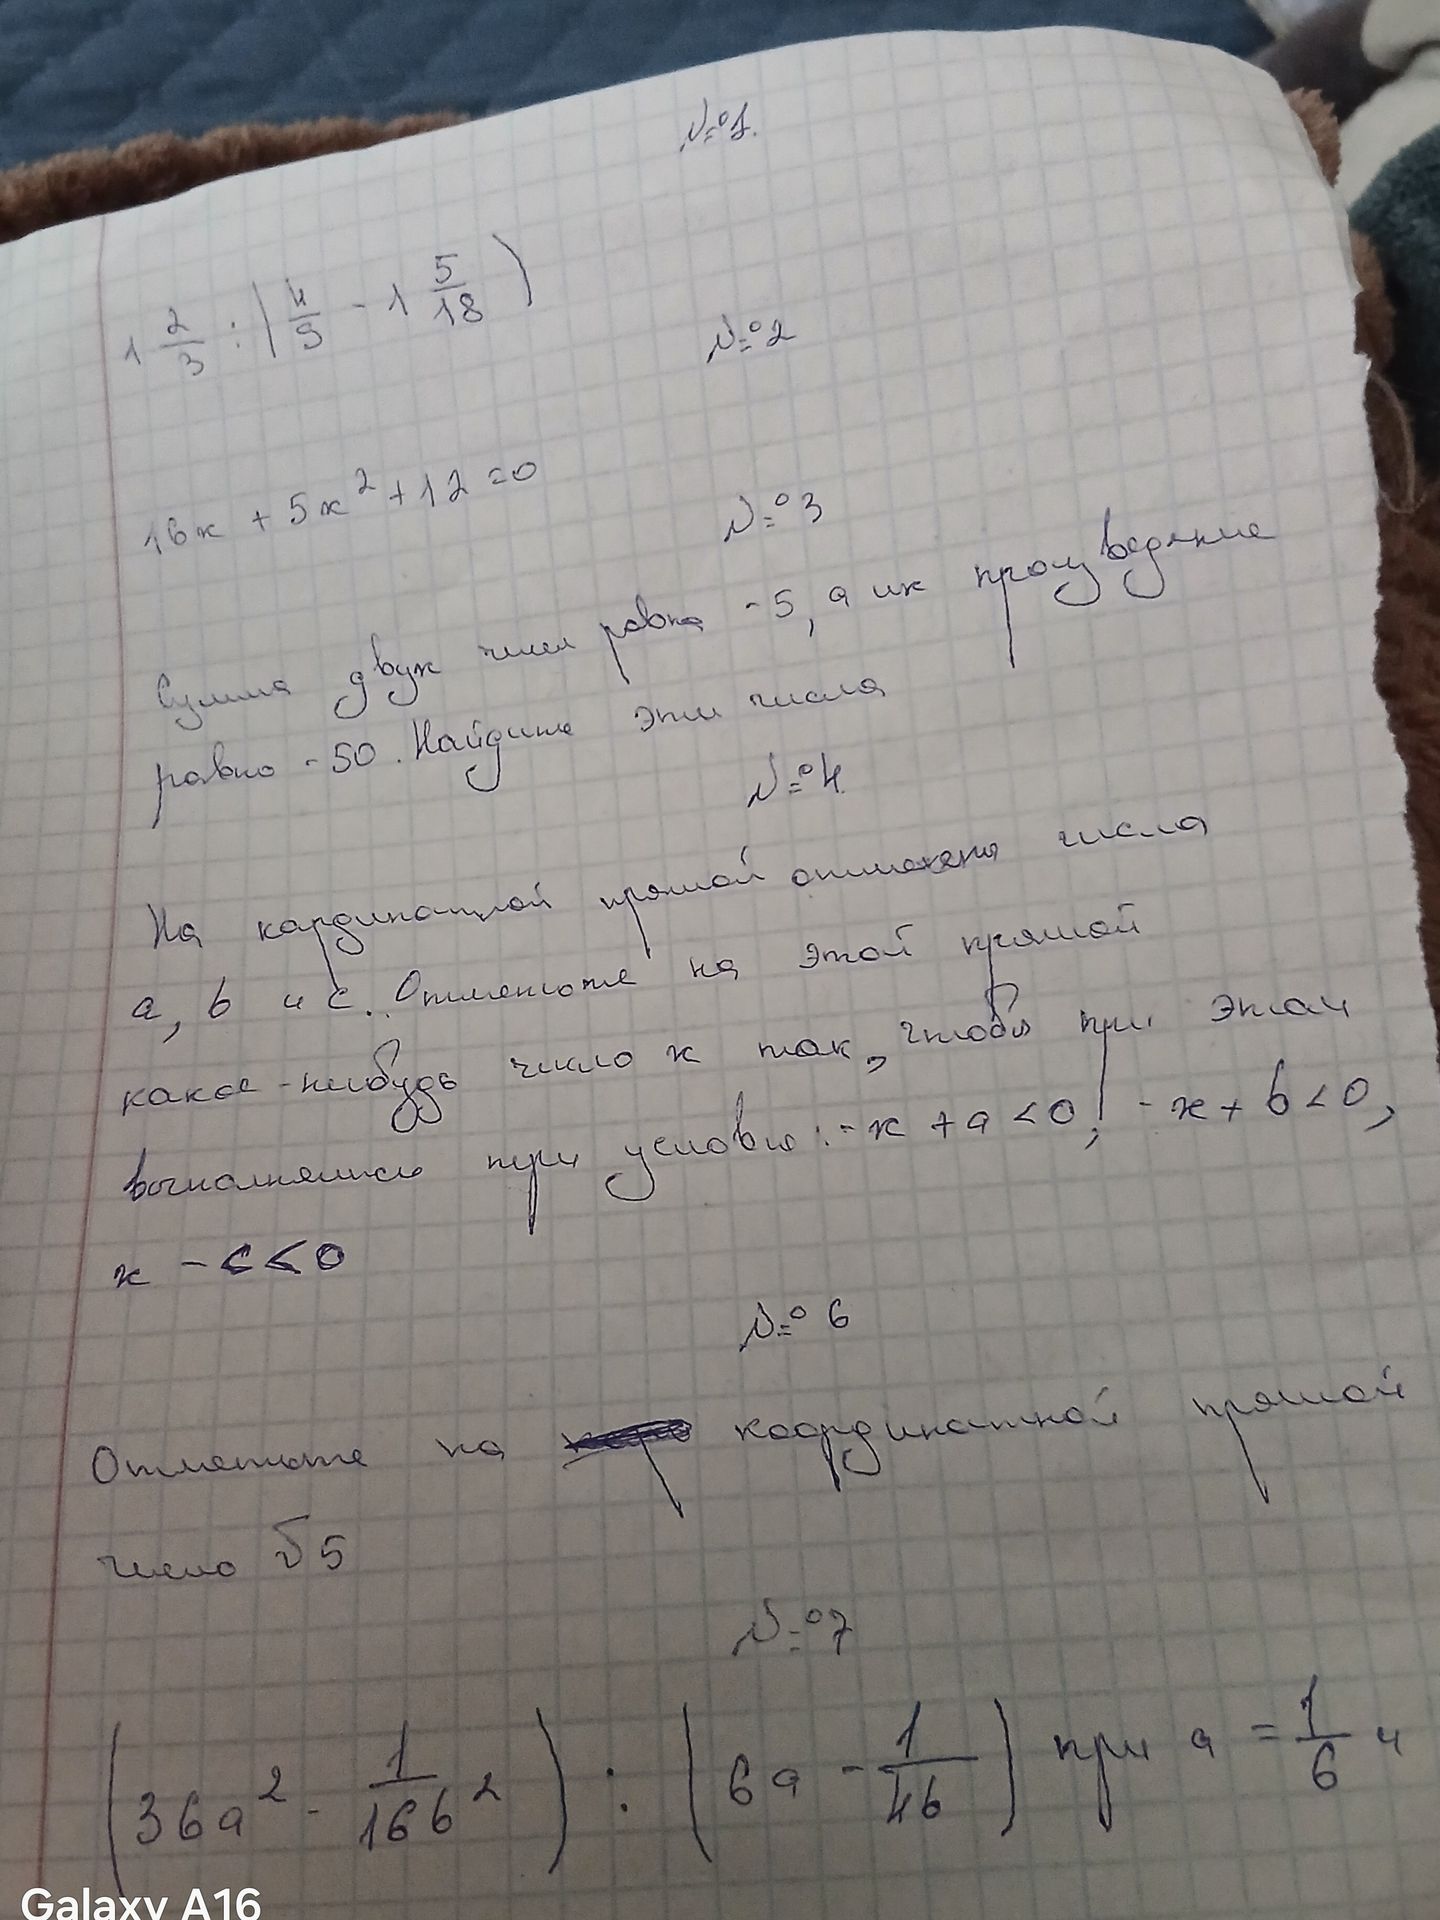 №1.
1 2/3 : (4/9 - 1 5/18)
№2
16x + 5x² + 12 = 0
№3
Сумма двух чисел равна -5, а их произведение
равно -50. Найдите эти числа
№4.
На кардинатной прямой отмечены числа
a, b и c. Отметьте на этой прямой
какое-нибудь число x так, чтобы при этом
выполнялись при условия: -x + a < 0, -x + b < 0,
x - c < 0
№6
Отметьте на координатной прямой
число √5
№7
(36a² - 1/16b²) : (6a - 1/4b) при a = 1/6 и
Galaxy A16